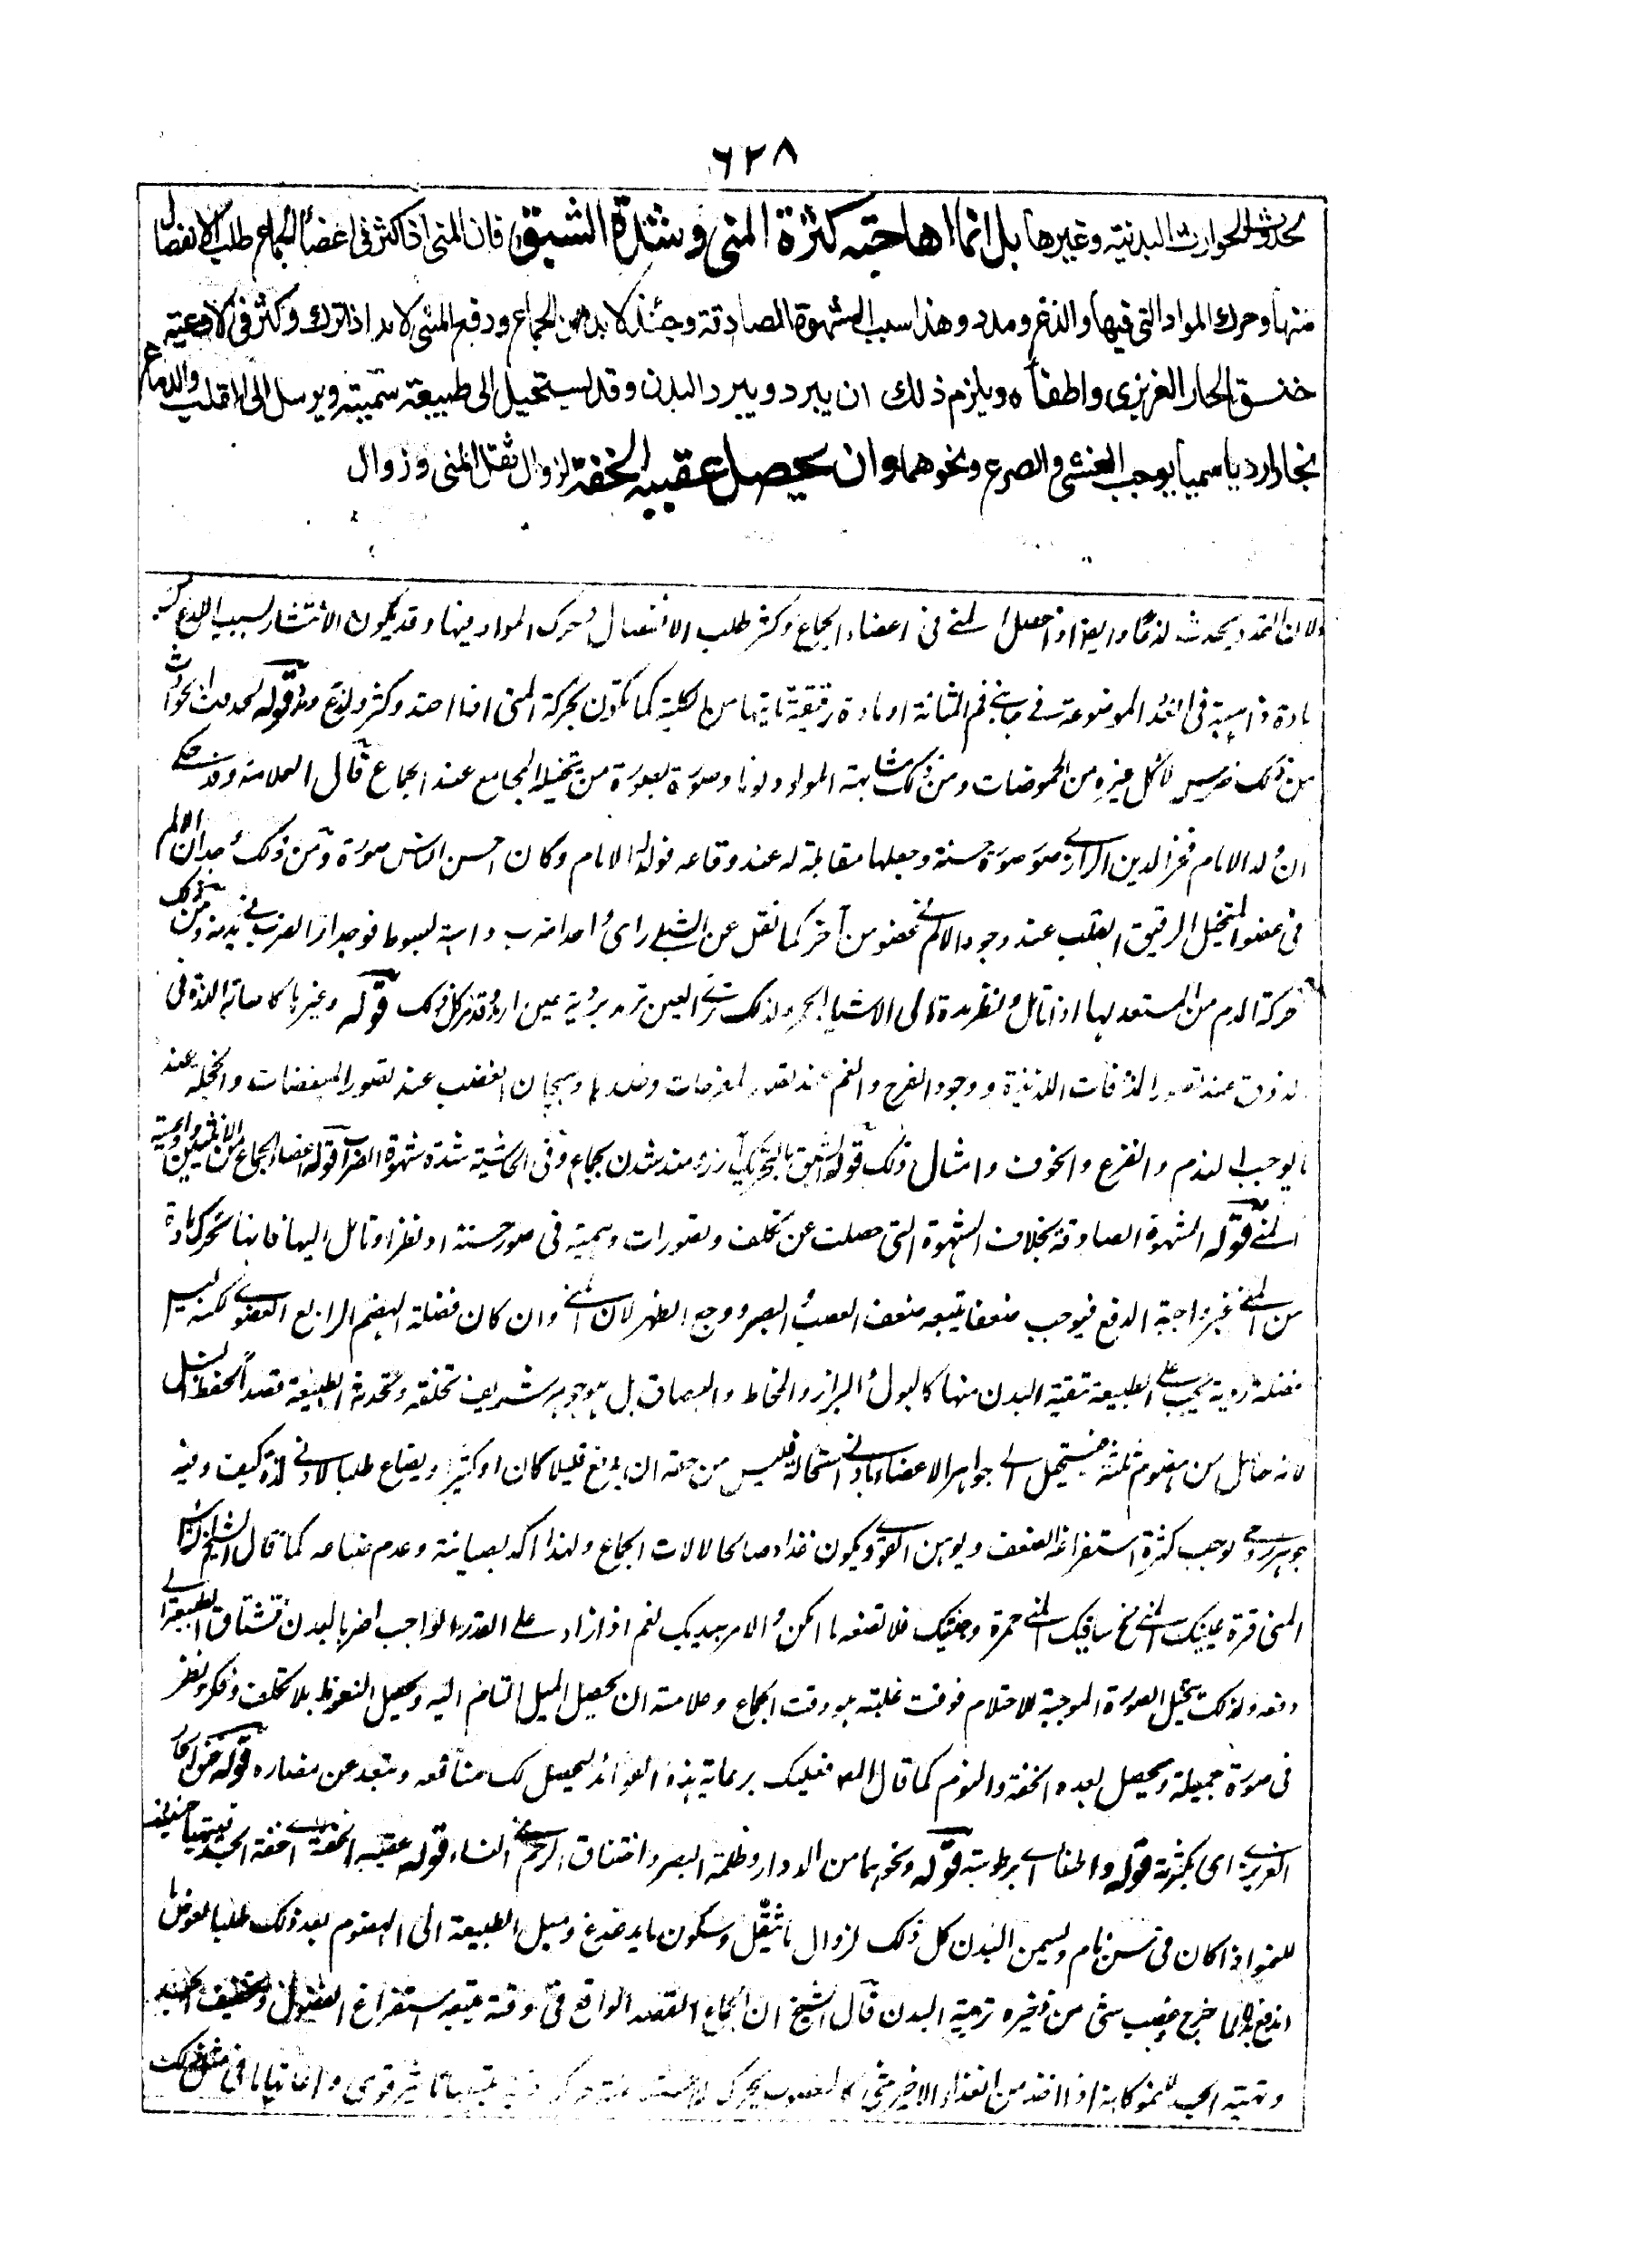 ٦٢٨
لحدوث الحوادث البدنية وغيرها بل انما اهاجته كثرة المنى وشدة الشبق فان المنى اذا كثر فى اعضاء الجماع طلب الانفصال
منها وحرك المواد التى فيها والذغ ومدد وهذا سبب الشهوة الصادقة وحينئذ لا بد من الجماع ودفع المنى لابد اذا ترك وكثر فى الاوعية
خنق الحار الغريزى واطفأه ويلزم ذلك ان يبرد ويبرد البدن وقد يستحيل الى طبيعة سمية ويرسل الى القلب والدماغ
بخارا رديا سميا يوجب الغشى والصرع ونحوهما وان يحصل عقيبه الخفة لزوال ثقل المنى وزوال
ولان التمدد يحدث لذعا وايضا اذا حصل المنے فى اعضاء الجماع وكثر طلب الانفصال وحرك المواد فيها وقد يكون الانتشار بسبب اللذع
مادة فى الغدد الموضوعة فے جانبے فم المثانة او مادة رقيقة تاتيها من الكلية كما تكون بحركة المنى اذا احتد وكثر ولذع قوله لحدوث الحوادث
من ذلك ضرس لاكل غيره من الحموضات ومن ذلك مشابهة المولود لونا وصورة بصورة من تخيله المجامع عند الجماع قال العلامة وقد حكے
ان ولد الامام فخر الدين الرازے صور صورة حسنة وجعلها مقابلة له عند وقاعه فولد الامام وكان احسن الناس صورة ومن ذلك وجدان الالم
فى عضو المتخيل الرقيق القلب عند وجود الالم فے عضو من آخر كما نقل عن الشبلے راى احدا ضرب دابته بسوط فوجد اثر الضرب فے بدنه ومن ذلك
حركة الدم من المستعد لها اذا تامل ونظر مدة الى الاشياء الحمر ولذلك ترے العين ترمد برؤية عين ارمد قوله وغيرها كاصابة اللذة فى
الذوق عند تصور المذاقات اللذيذة ووجود الفرح والغم عند تصور المفرحات وضدها وهيجان الغضب عند تصور المبغضات والخجلة عند
ما يوجب الندم والفزع والخوف وامثال ذلك قوله الشبق بالتحريك آرزومند شدن بجماع وفى الحاشية شدة شهوة الضراب قوله اعضاء الجماع من الانثيين واوعية
المنے قوله الشهوة الصادقة بخلاف الشهوة التى حصلت عن تكلف وتصورات وهمية فى صور حسنة او نظر او تامل اليها فانها تحرك مادة
من المنے غير واجبة الدفع فيوجب ضعفا يتبعه ضعف العصب والبصر ووجع الظهر لان المنے وان كان فضلة الهضم الرابع العضوے لكنه ليس
فضلة ردية يجب علے الطبيعة تنقية البدن منها كالبول والبراز والمخاط والبصاق بل هو جوهر شريف تخلقه وتحدثه الطبيعة قصدا لحفظ النسل
لانه حاصل من هضوم ثلثة فيستحيل الے جواهر الاعضاء بادنے استحالة فليس من حقه ان يدفع قليلا كان او كثيرا ويضاع طلبا لادنے لذة كيف وفيه
جوهر روحے يوجب كثرة استفراغه الضعف ويوهن القوے ويكون غذاء صالحا لالات الجماع ولهذا اكد بصيانته وعدم ضياعه كما قال الشيخ الرئيس
المنى قرة عينيك المنے مخ ساقيك المنے حمرة وجنتيك فلا تضعه ما امكن والامر بيديك نعم اذا زاد علے القدر الواجب اضر بالبدن فتشتاق الطبيعة الے
دفعه ولذلك يتخيل الصورة الموجبة للاحتلام فوقت غلبته هو وقت الجماع وعلامته ان يحصل الميل التام اليه ويحصل النعوظ بلا تكلف وفكر ونظر
فى صورة جميلة ويحصل بعده الخفة والنوم كما قال المص فعليك برعاية هذه الفوائد ليحصل لك منافعه وتبعد عن مضاره قوله خنق الحار
الغريزے اى بكثرته قوله واطفاه اے برطوبته قوله ونحوهما من الدوار وظلمة البصر واختناق الرحم فے النساء قوله عقيبه الخفة اے خفة الجسد
للنمو اذا كان فى سن نام ويسمن البدن كل ذلك لزوال ما يثقل وسكون ما يدغدغ وميل الطبيعة الى الهضوم بعد ذلك طلبا لعوض ما
اندفع لما خرج وغصب شئ من ذخيره تربية البدن قال الشيخ ان الجماع القصد الواقع فى وقته يتبعه استفراغ الفضول وتخفيف الجسد
وتهيئة الجسد للنمو كانه اذا اخذ من الغذاء الاخير شئ كالمغصوب